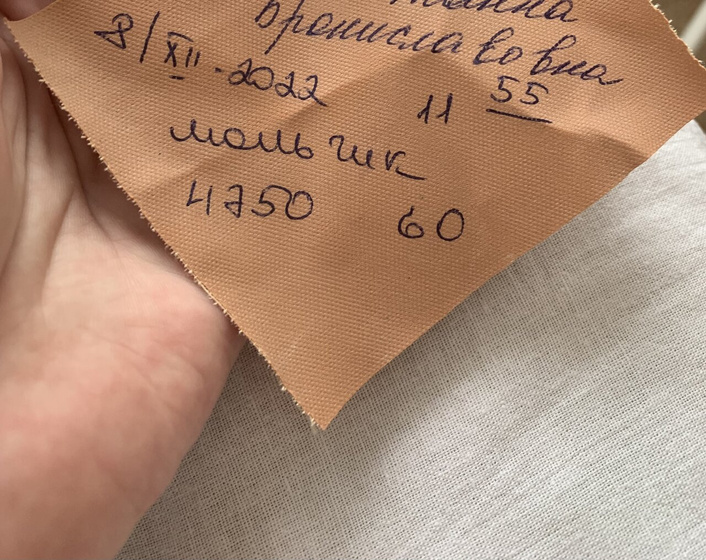 Жанна
Брониславовна
8/XII-2022 11 55
мальчик
4750 60